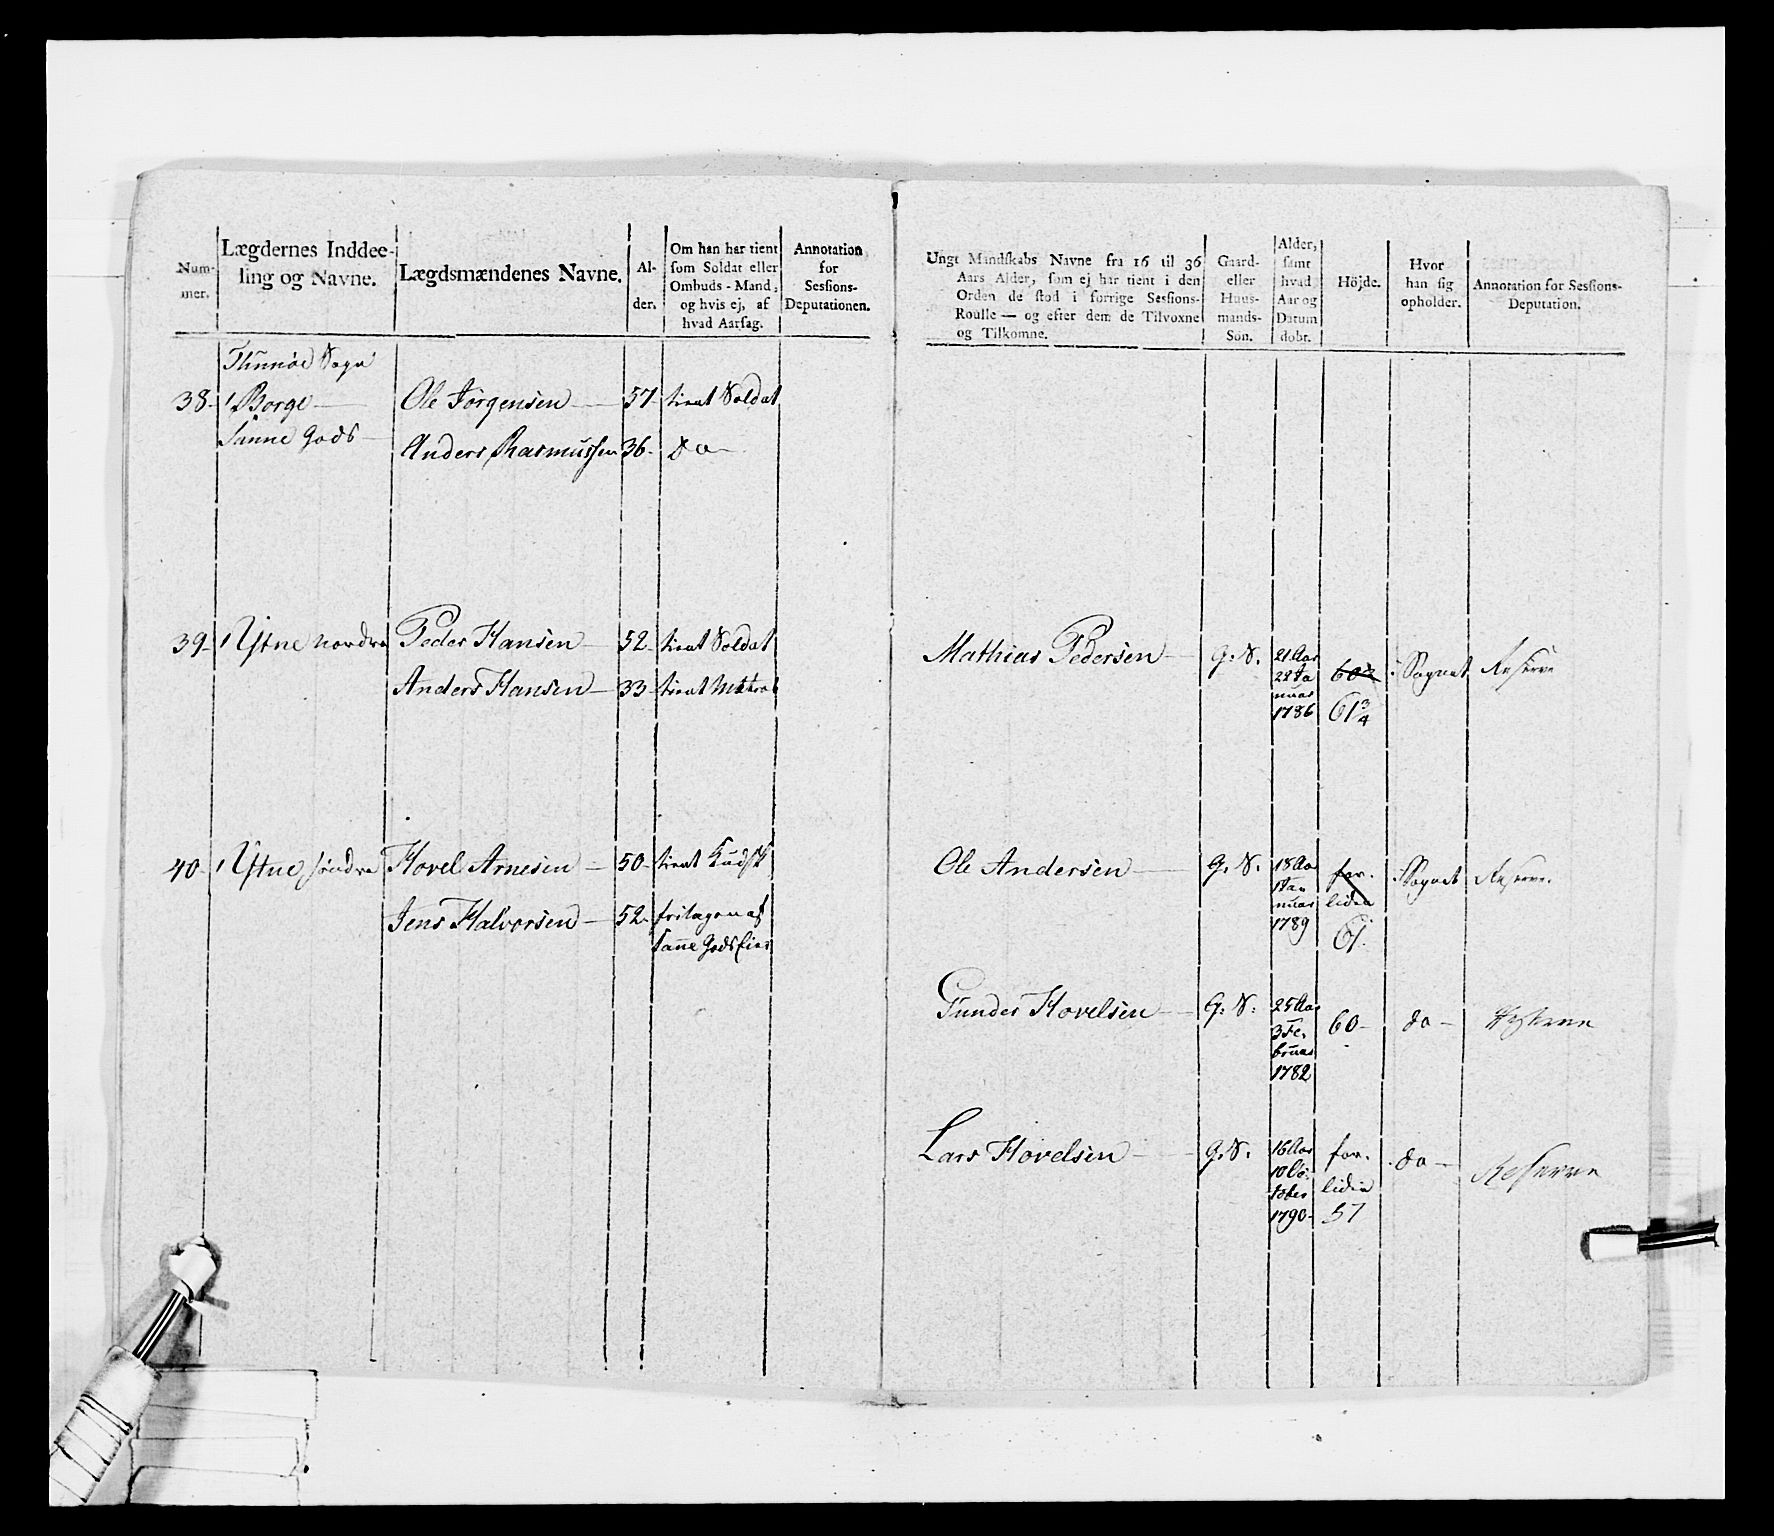 Num-
mer.
Lægdernes Inddee-
ling og Navne.
Lægdsmændenes Navne.
Al-
der.
Om han har tient
som Soldat eller
Ombuds-Mand;
og hvis ej, af
hvad Aarsag.
Annotation
for
Sessions-
Deputationen.
Ungt Mandskabs Navne fra 16 til 36
Aars Alder, som ej har tient i den
Orden de stod i forrige Sessions-
Roulle — og efter dem de Tilvoxne
og Tilkomne.
Gaard-
eller
Huus-
mands-
Søn.
Alder,
samt
hvad
Aar og
Datum
dobt.
Höjde.
Hvor
han sig
opholder.
Annotation for Sessions-
Deputation.
Sogn
38. 1 Borge Ole Jørgensen 57 tient Soldat
Sanne Gods
Anders Rasmussen 36. do
39. 1 Ytne nordre Peder Hansen 52 tient Soldat
Anders Hansen 33 tient Matros
Mathias Pedersen G. S. 21 Aar
22 Ja
nuar
1786
61 3/4
i Sognet Reserve
40. 1 Ytne søndre Hovel Arnesen 50 tient Kudsk
Jens Halvorsen 52. fritagen af
Sanne Gods Eier
Ole Andersen G. S. 18 Aar
1 Ja
nuar
1789
for-
liden
61.
i Sognet Reserve.
Gunder Hovelsen G. S. 25 Aar
3 Fe-
bruar
1782
60 do
Lars Hovelsen G. S. 16 Aar
10 Oc-
tober
1790
for-
liden
57
do Reserve